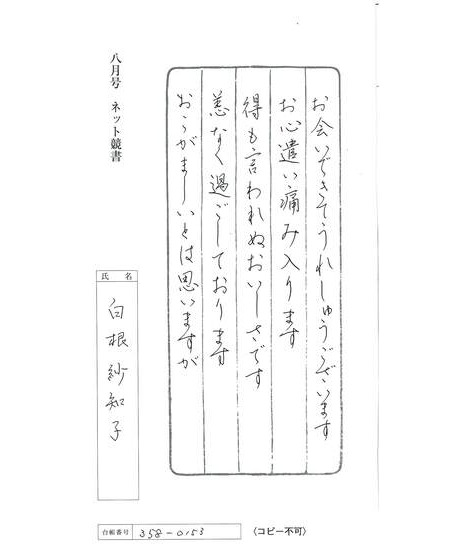 お会いできてうれしゅうございます
お心遣い痛み入ります
得も言われぬおいしさです
恙なく過ごしております
おこがましいとは思いますが
八月号 ネット競書
氏 名
白根紗知子
台帳番号 358-0153
〈コピー不可〉